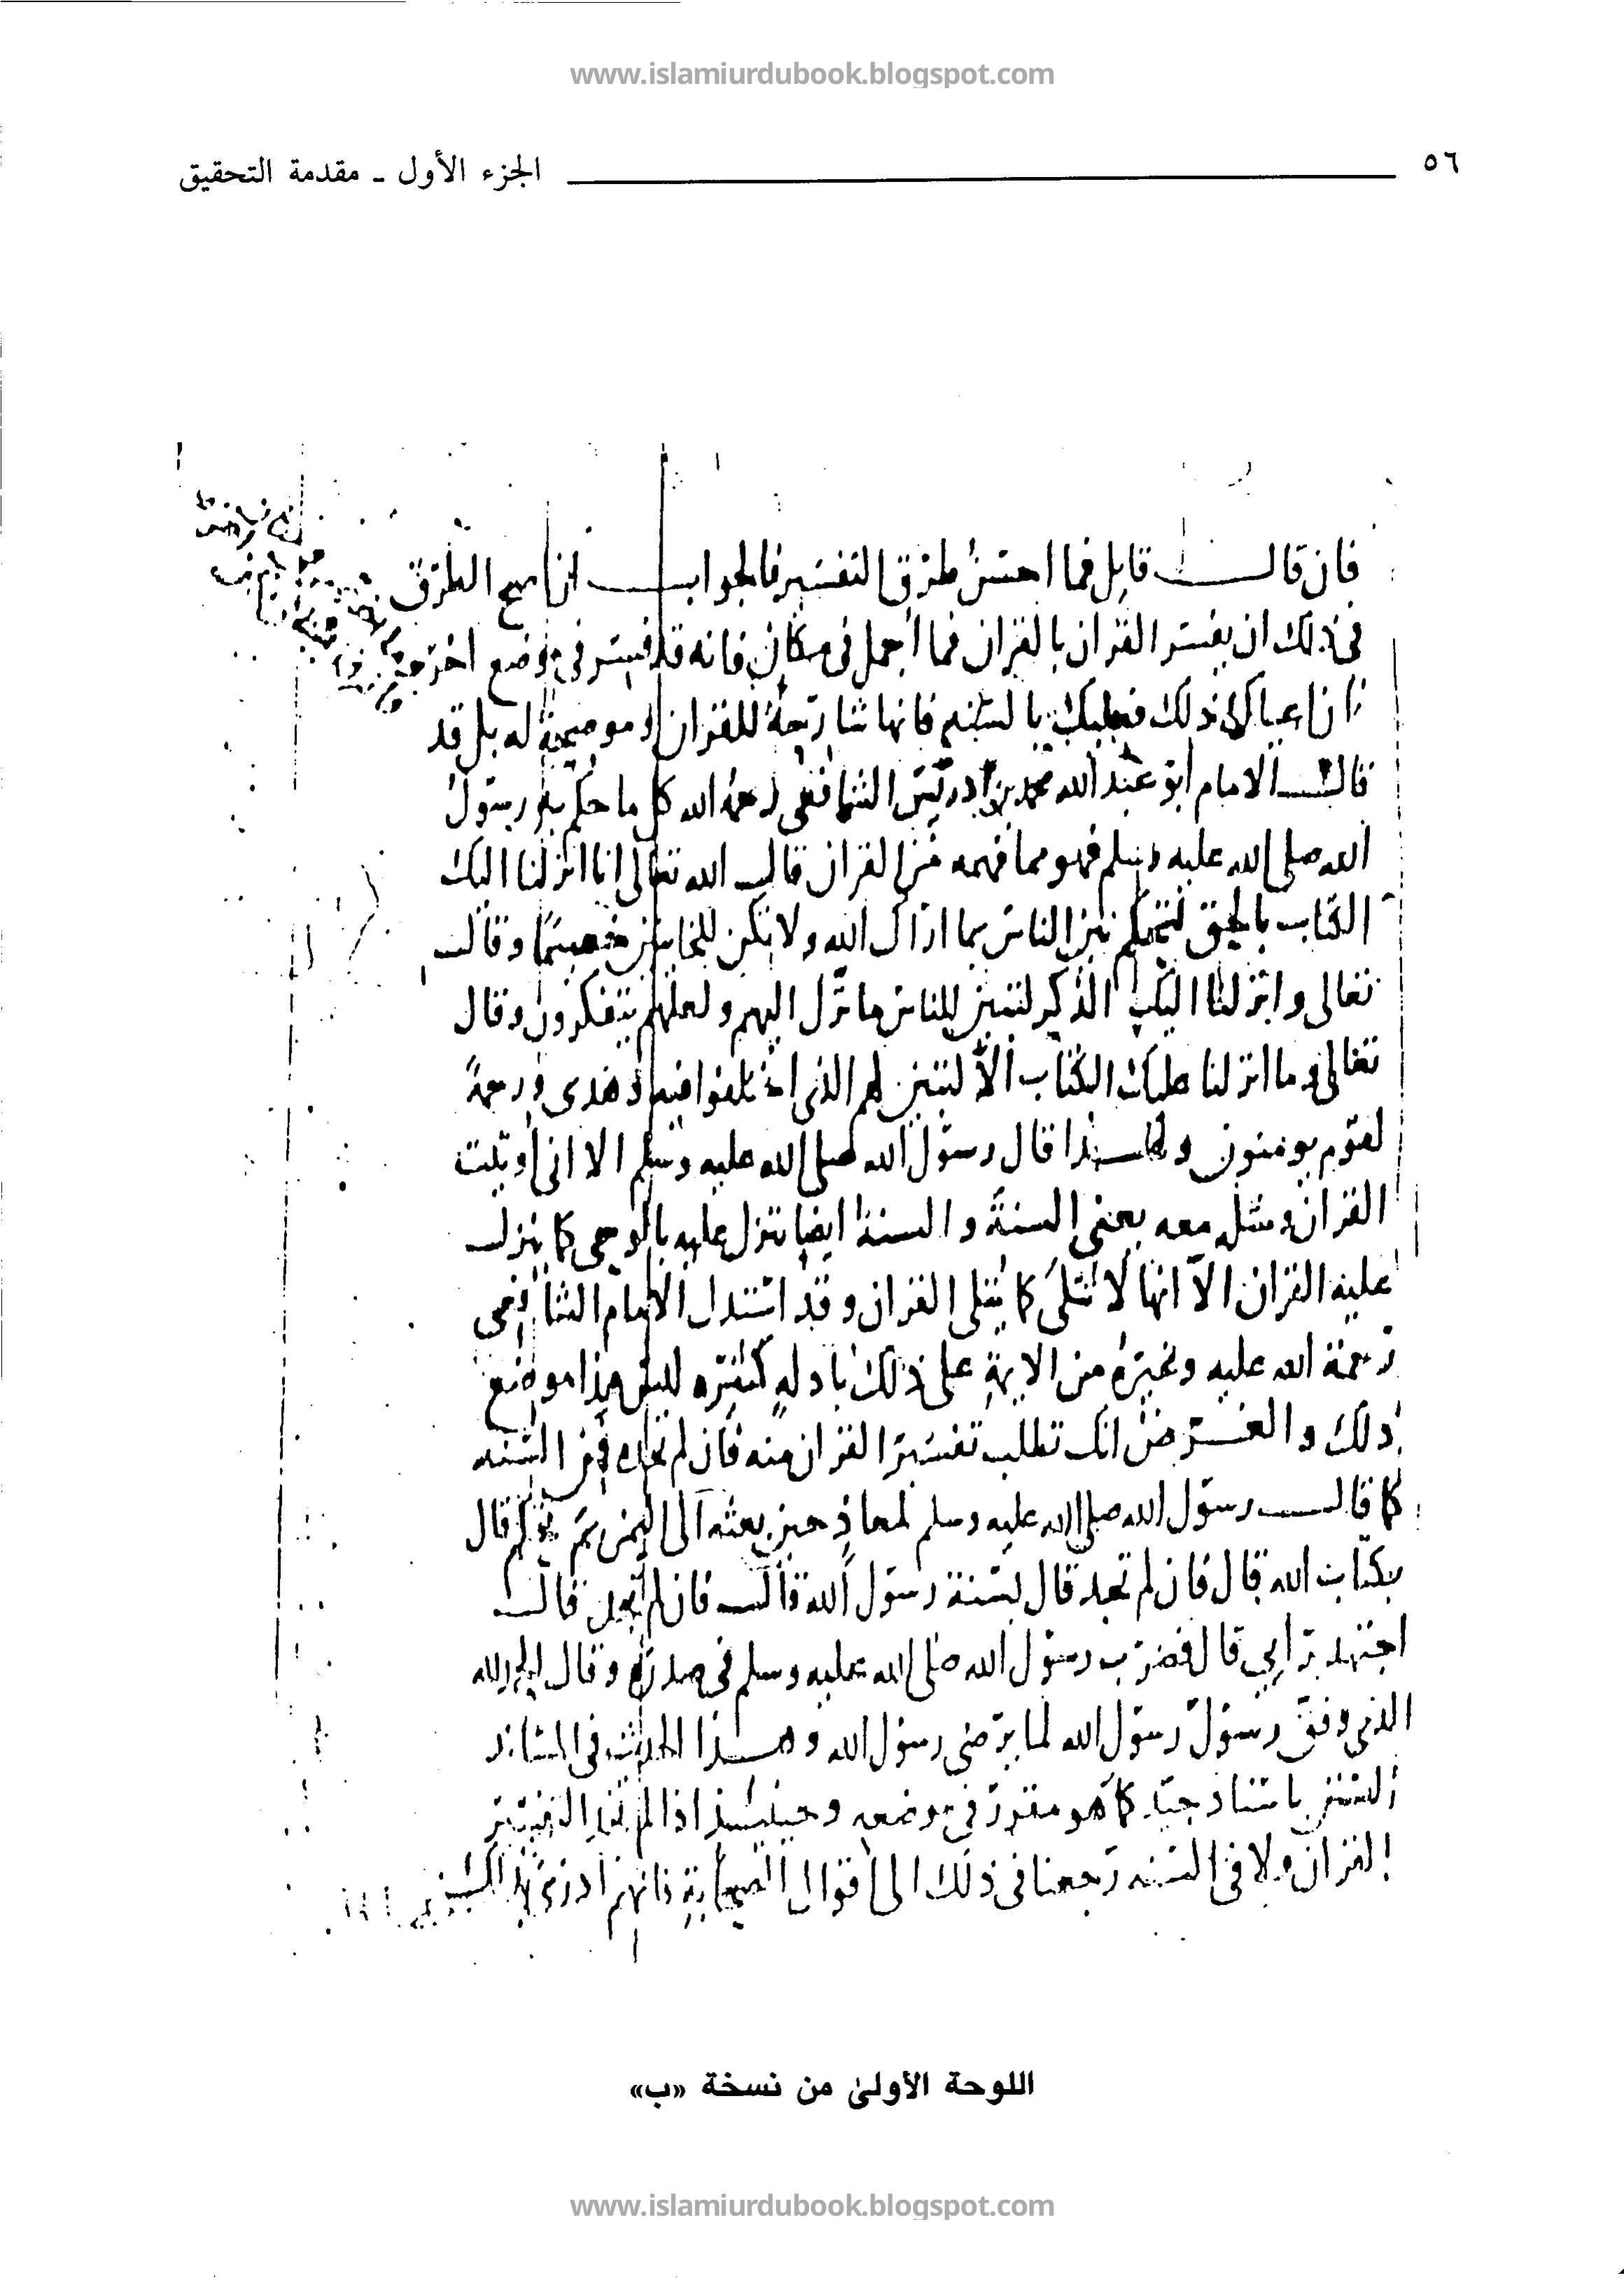 www.islamiurdubook.blogspot.com
٥٦ الجزء الأول ـ مقدمة التحقيق
فان قالـــ قايل فما احسن طرق التفسير فالجوابـــ ان اصح الطرق
في ذلك ان يفسر القران بالقران فما أجمل في مكان فانه قد فسر في موضع اخر
فان اعياك ذلك فعليك بالسنه فانها شارحة للقران وموضحة له بل قد
قالـــ الامام ابو عبد الله محمد بن ادريس الشافعي رحمه الله كل ما حكم به رسول
الله صلى الله عليه وسلم فهو مما فهمه من القران قال الله تعالى انا انزلنا اليك
الكتاب بالحق لتحكم بين الناس بما اراك الله ولا تكن للخاينين خصيما وقالـــ
تعالى وانزلنا اليك الذكر لتبين للناس ما نزل اليهم ولعلهم يتفكرون وقال
تعالى وما انزلنا عليك الكتاب الا لتبين لهم الذي اختلفوا فيه وهدى ورحمة
لقوم يومنون ولهـــذا قال رسول الله صلى الله عليه وسلم الا اني اوتيت
القران ومثله معه يعني السنة والسنة ايضا تنزل عليه بالوحي كما ينزلـــ
عليه القران الا انها لا تتلى كما يتلى القران وقد استدل الامام الشافعي
رحمة الله عليه وغيره من الايمة على ذلك بادلة كثيره ليس هذا موضع
ذلك والغـــرض انك تطلب تفسير القران منه فان لم تجده فمن السنه
كما قالـــ رسول الله صلى الله عليه وسلم لمعاذ حين بعثه الى اليمن بم تحكم قال
بكتاب الله قال فان لم تجد قال بسنة رسول الله قالـــ فان لم تجد قالـــ
اجتهد برايي قال فضرب رسول الله صلى الله عليه وسلم في صدره وقال الحمد لله
الذي وفق رسول رسول الله لما يرضي رسول الله وهـــذا الحديث في المساند
والسنن باسناد جيد كما هو مقرر في موضعه وحينئـــذ اذا لم نجد التفسير
القران ولا في السنه رجعنا في ذلك الى اقوال الصحابة فانهم ادرى
اللوحة الأولىٰ من نسخة «ب»
www.islamiurdubook.blogspot.com